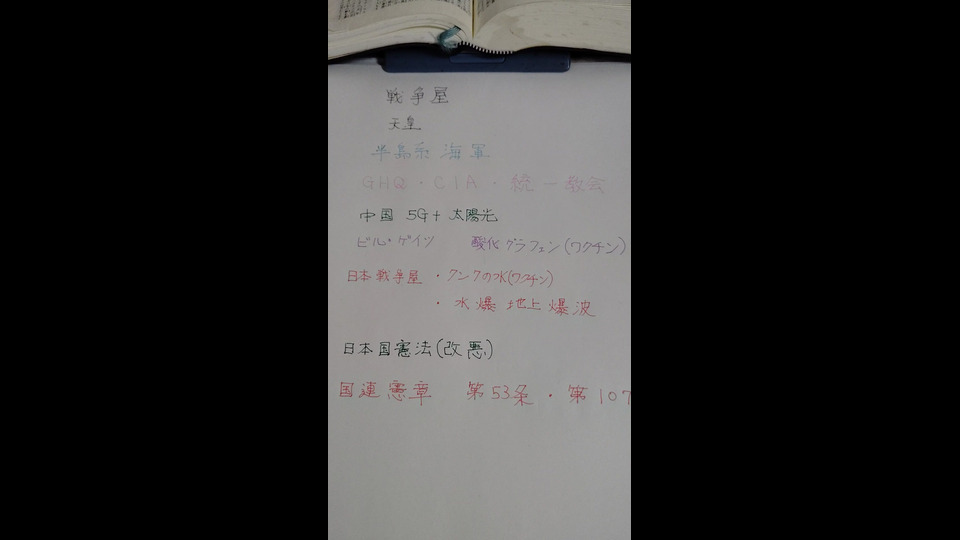 戦争屋
天皇
半島系海軍
GHQ・CIA・統一教会
中国 5G+太陽光
ビル・ゲイツ 酸化グラフェン(ワクチン)
日本戦争屋 ・タンクの水(ワクチン)
・水爆 地上 爆波
日本国憲法(改悪)
国連憲章 第53条・第107